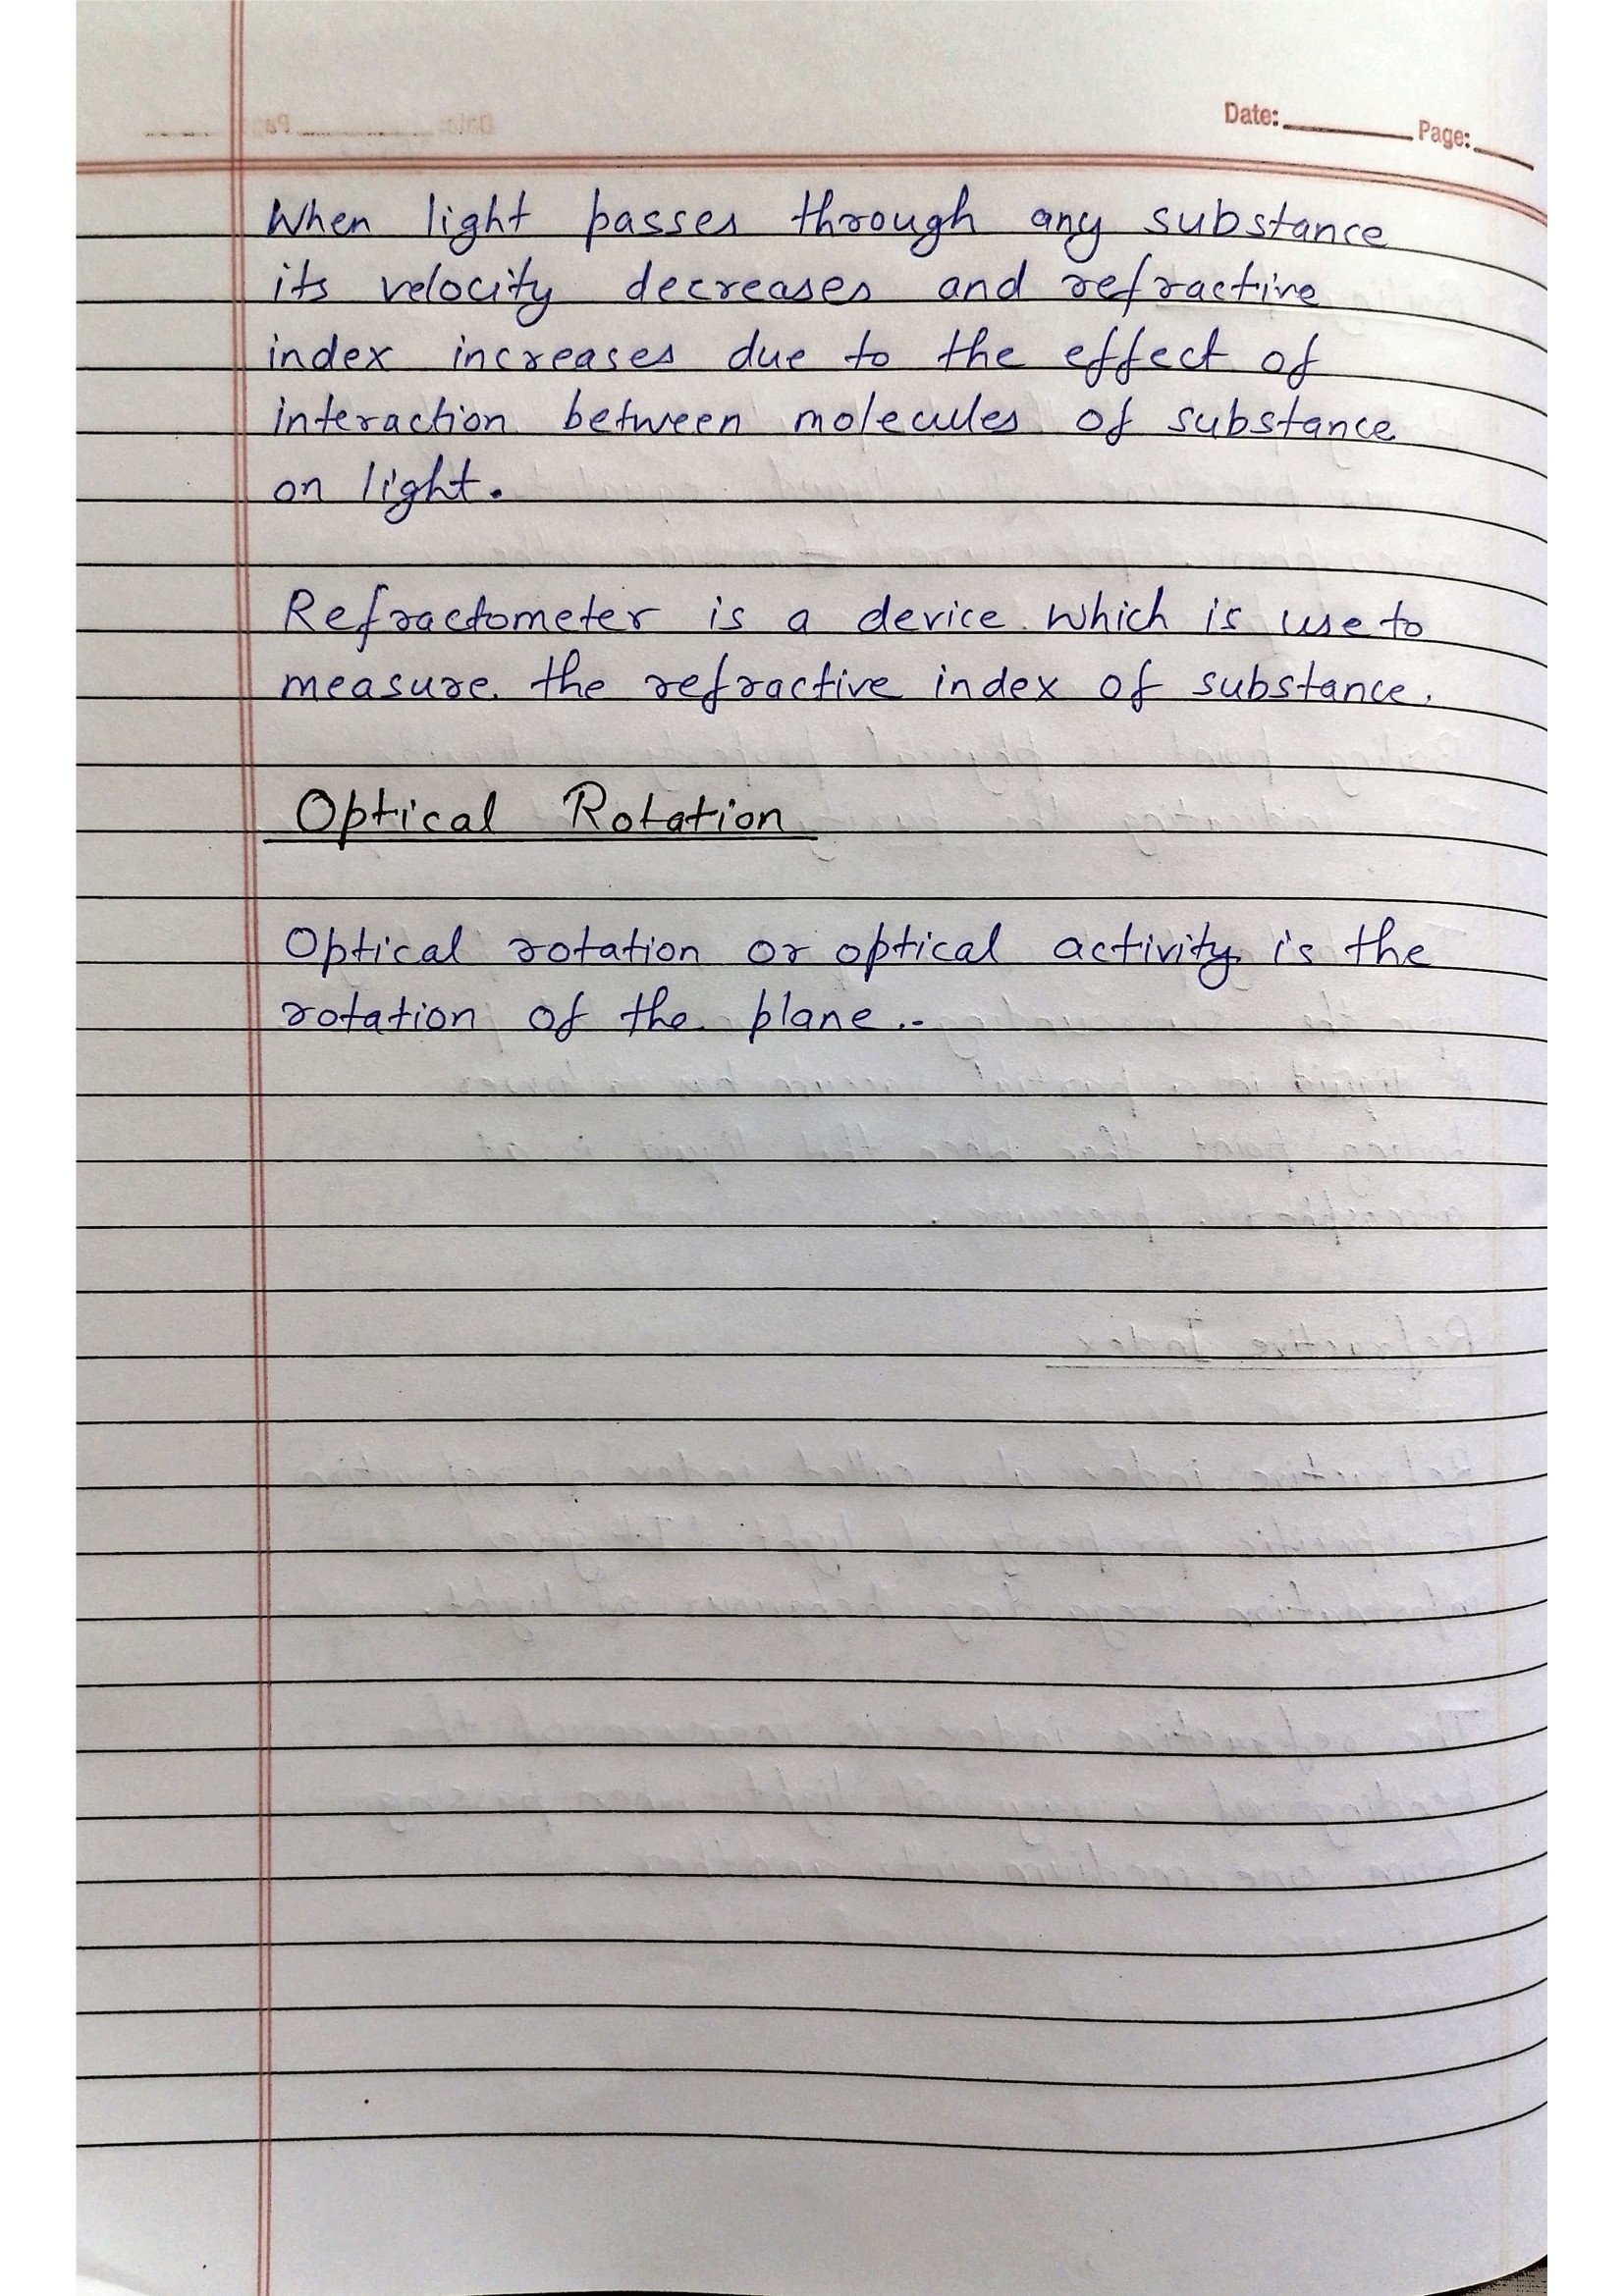 Date: Page:
When light passes through any substance
its velocity decreases and refractive
index increases due to the effect of
interaction between molecules of substance
on light.
Refractometer is a device which is use to
measure the refractive index of substance.
Optical Rotation
Optical rotation or optical activity is the
rotation of the plane..